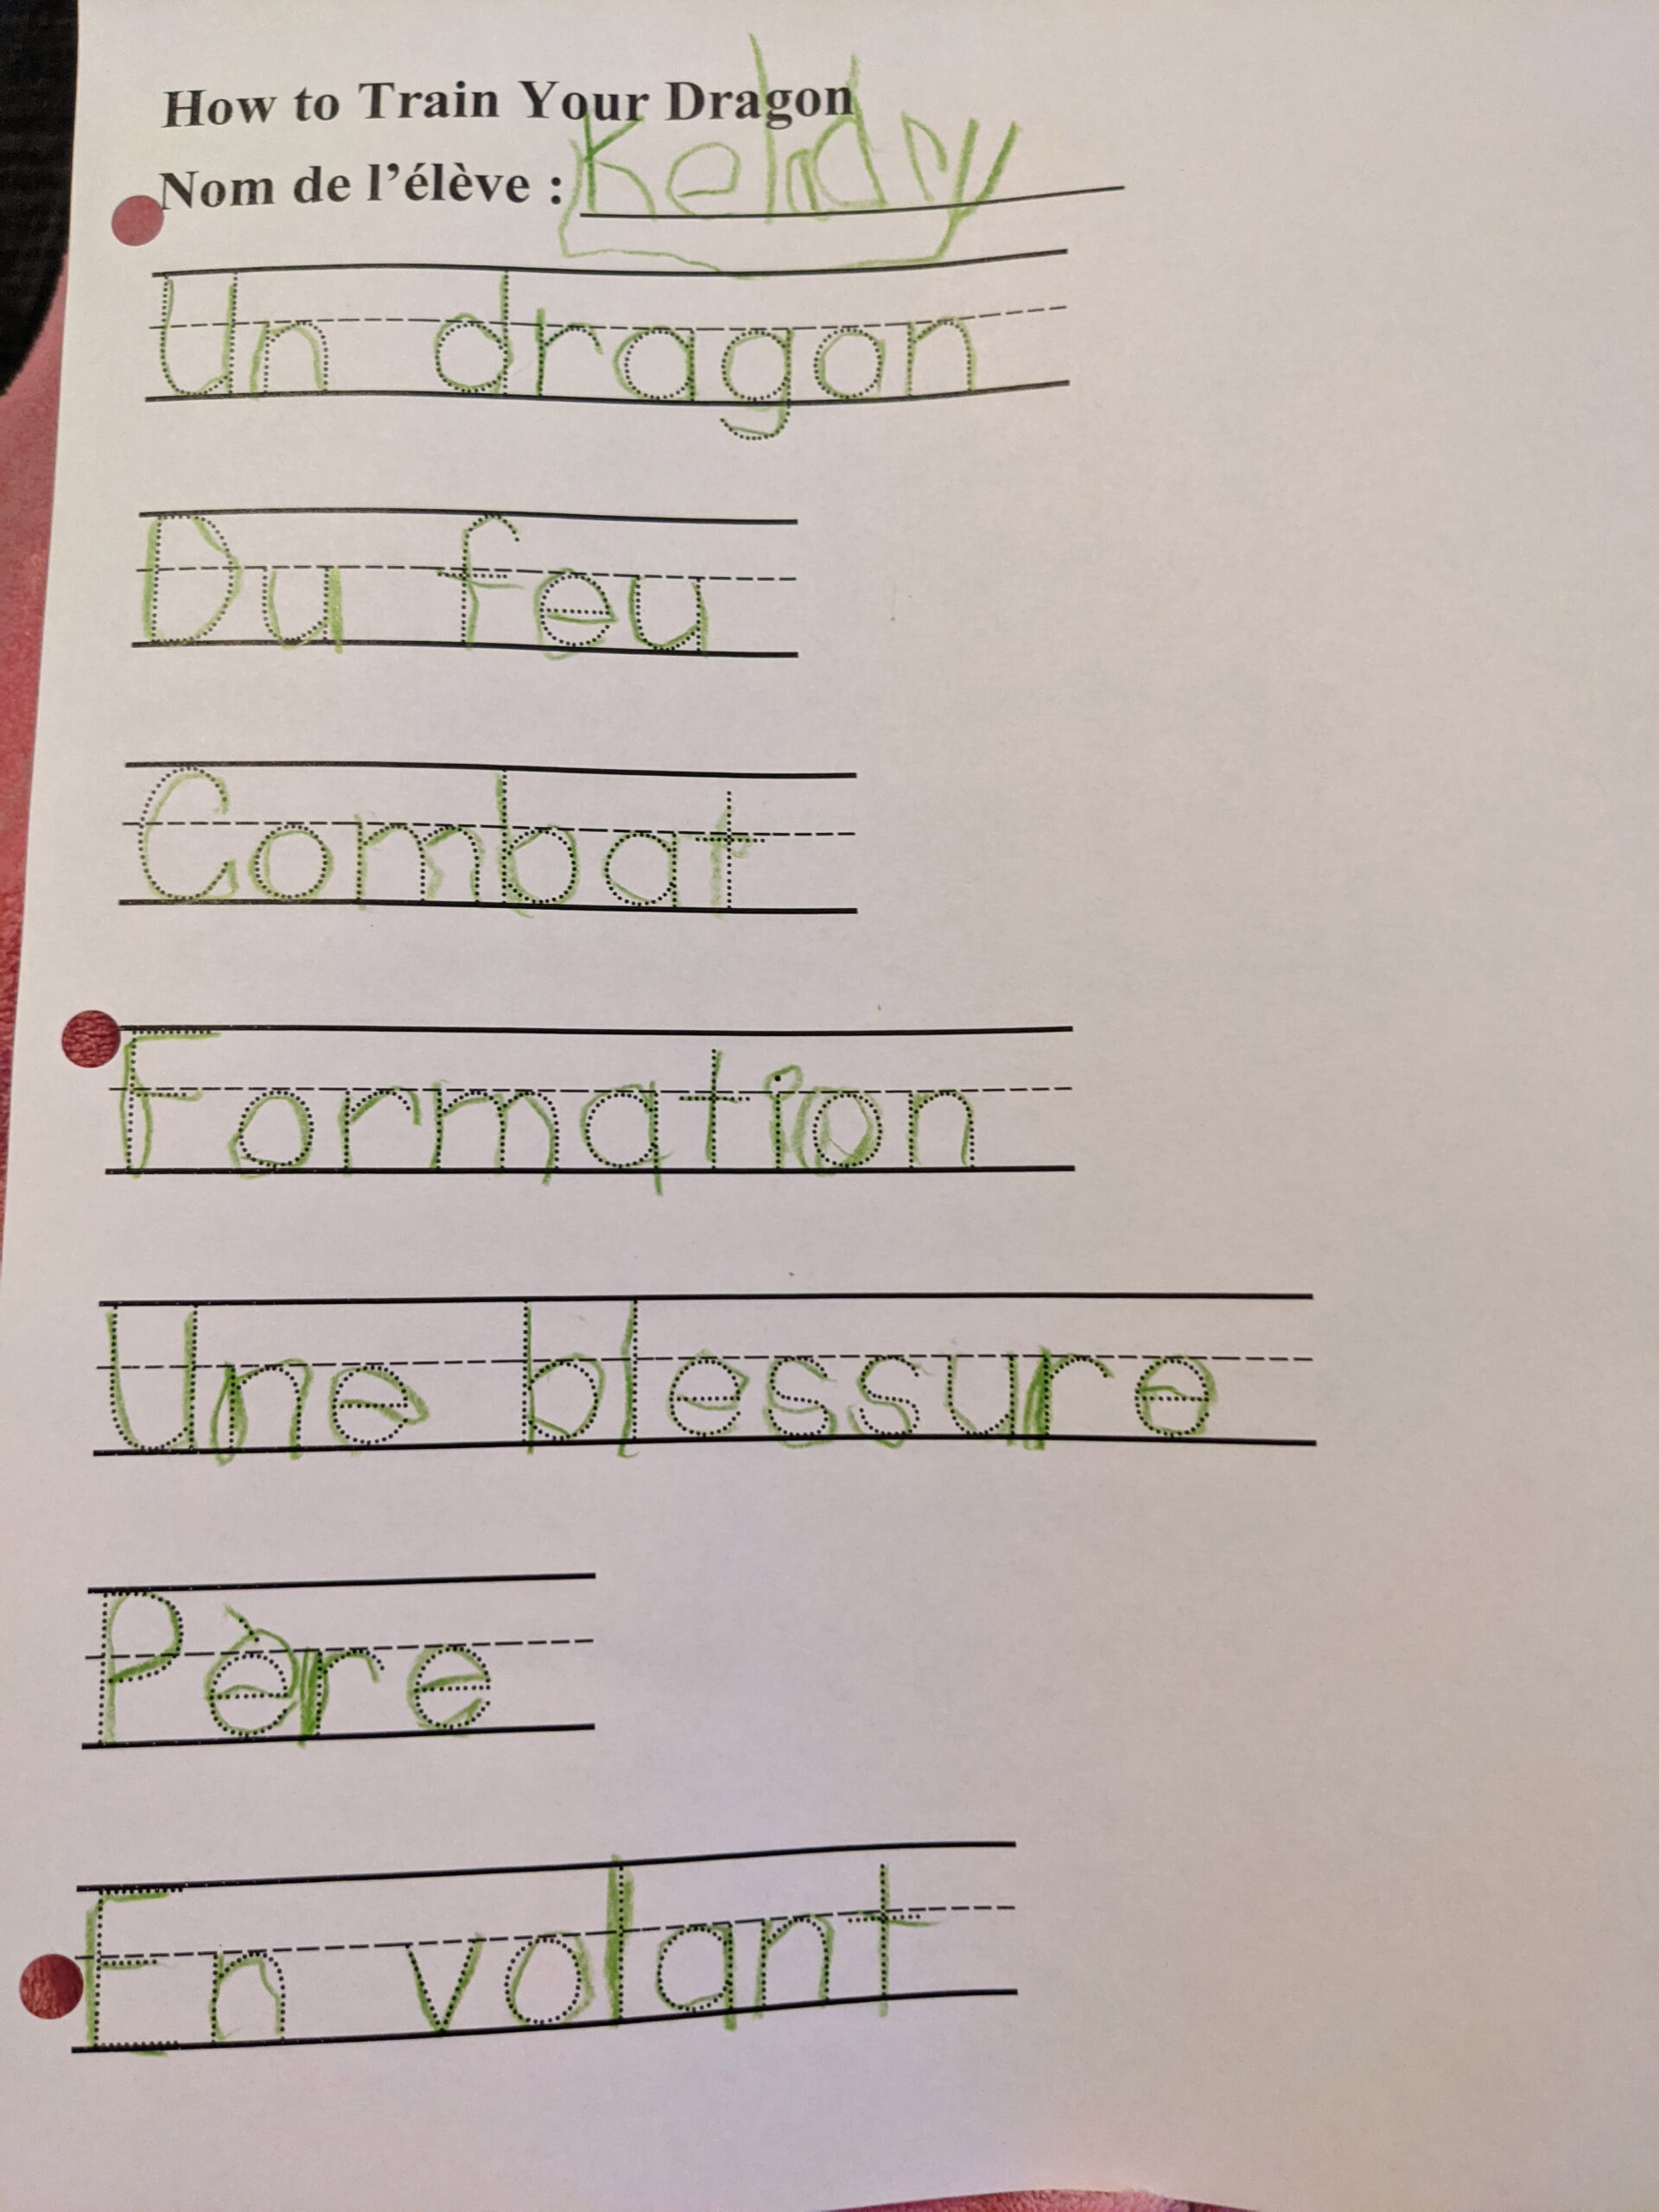 How to Train Your Dragon
Nom de l'élève : Keldry
Un dragon
Du feu
Combat
Formation
Une blessure
Père
En volant